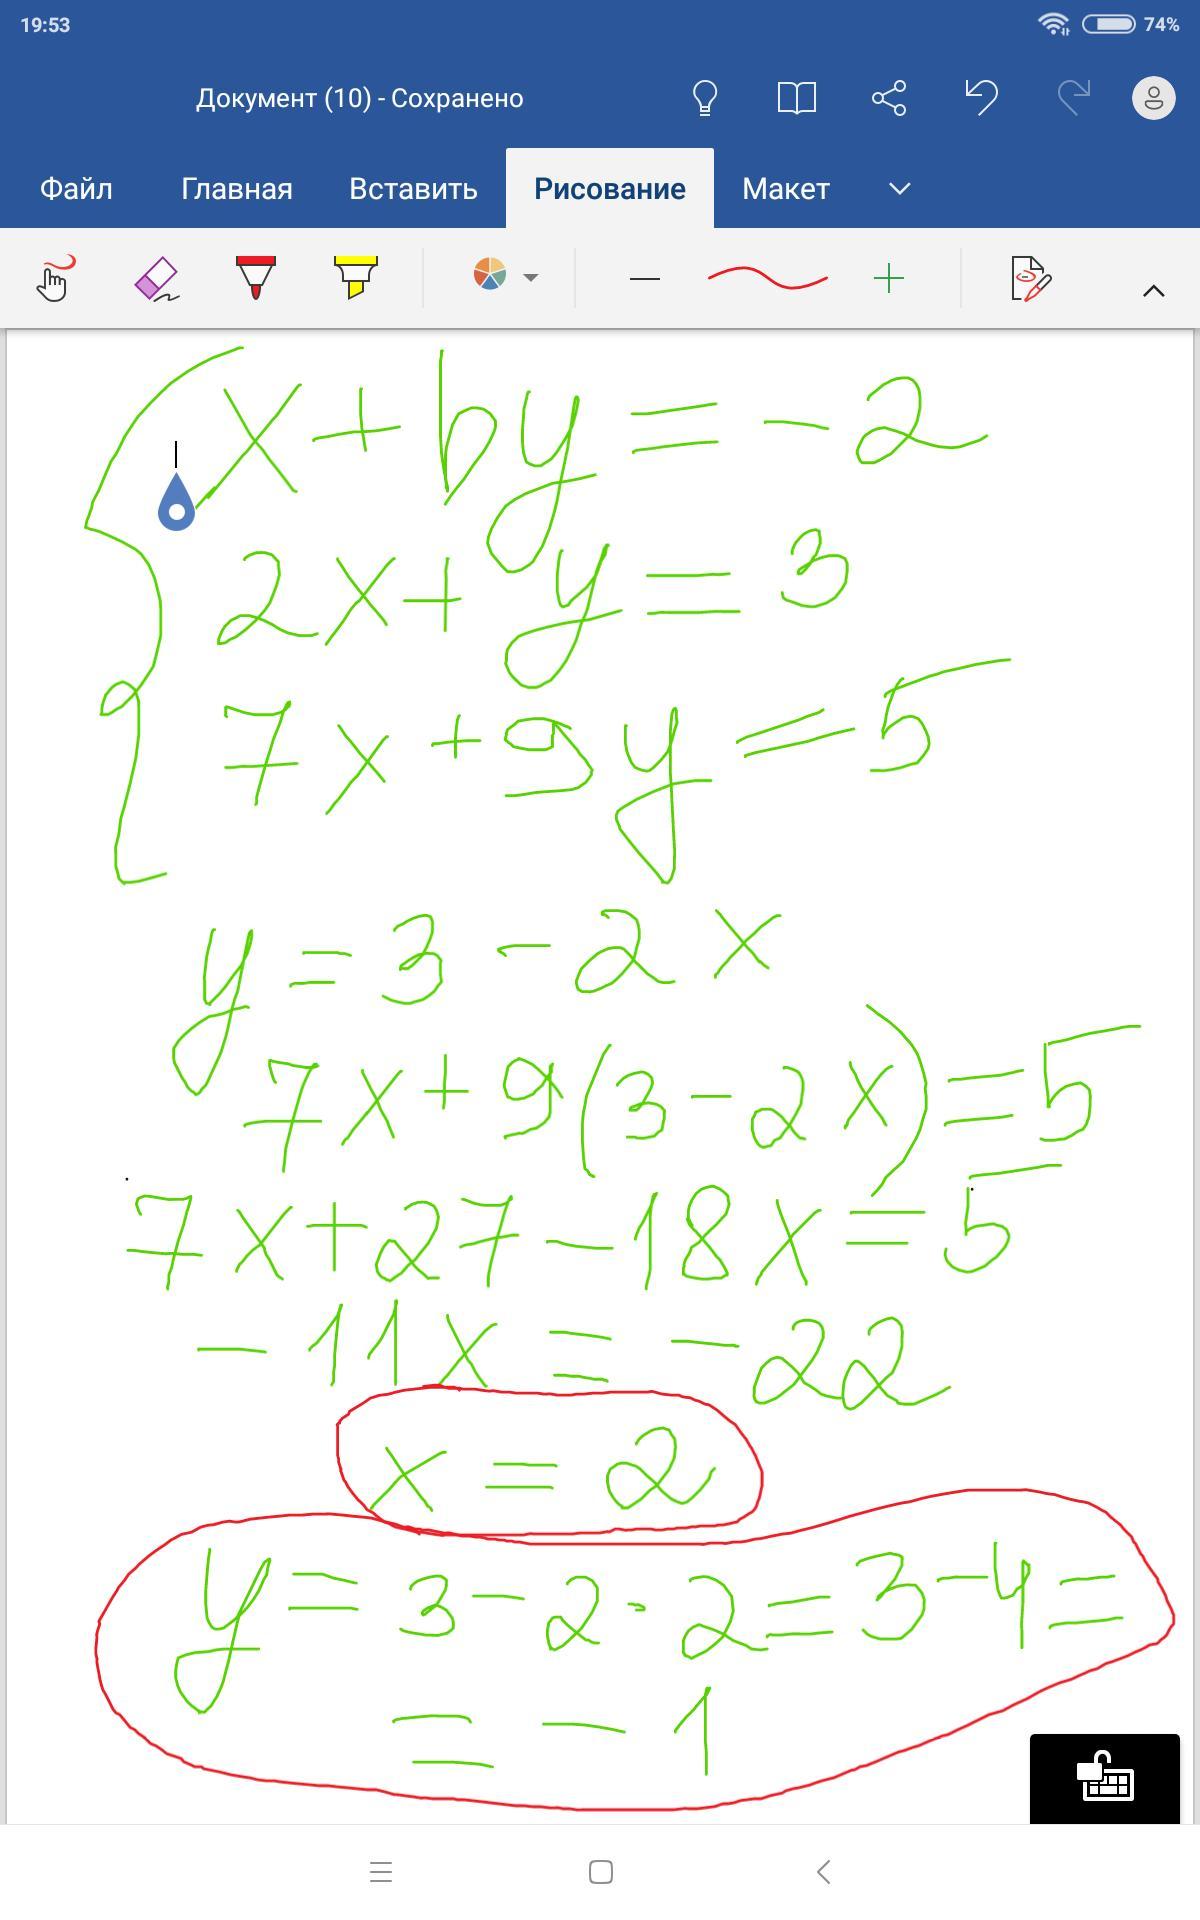 19:53 74%
Документ (10) - Сохранено
Файл Главная Вставить Рисование Макет
x + by = - 2
2x + y = 3
7x + 9y = 5
y = 3 - 2x
7x + 9(3 - 2x) = 5
7x + 27 - 18x = 5
- 11x = - 22
x = 2
y = 3 - 2 · 2 = 3 - 4 =
= - 1